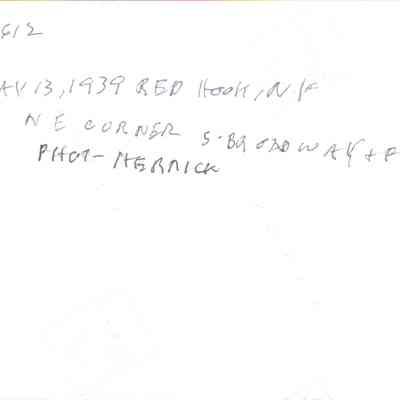 612
AY 13, 1939 RED HOOK, N.Y
N E CORNER S. BROADWAY + F
PHOT- HERRICK